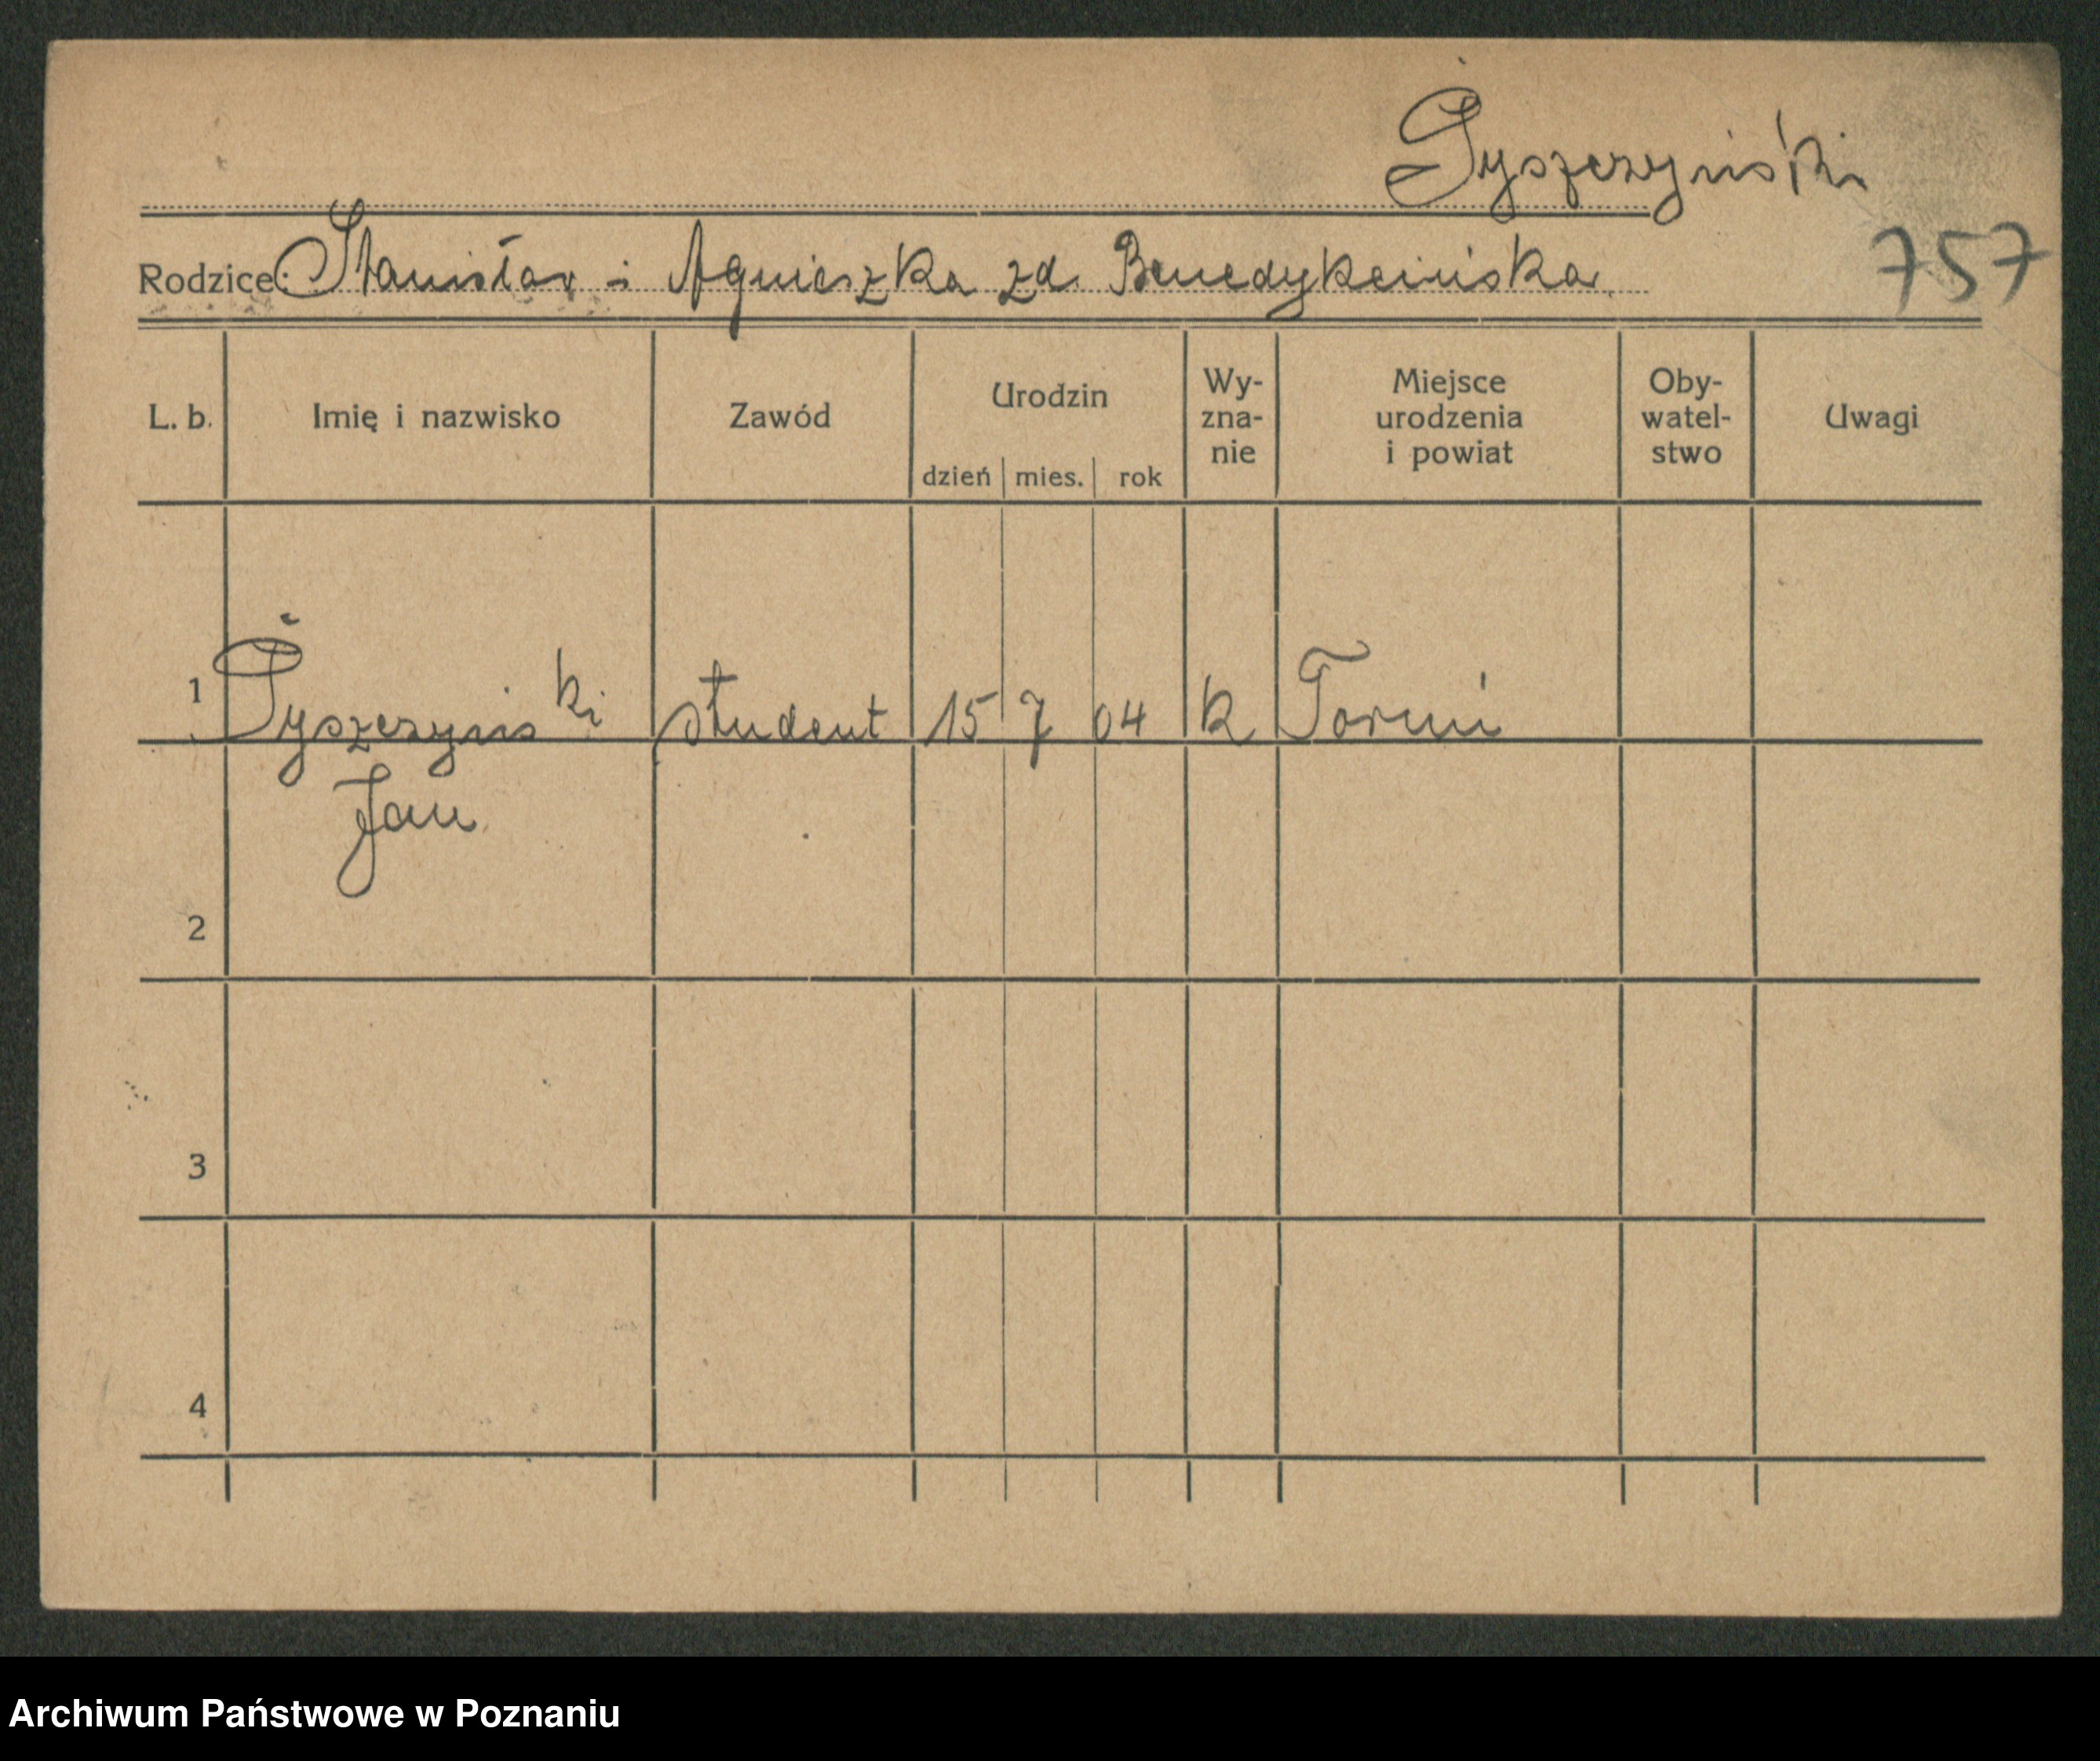 Pyszczyński
Rodzice: Stanisław i Agnieszka zd. Benedykcińska
757
L. b. Imię i nazwisko Zawód Urodzin dzień mies. rok Wy-zna-nie Miejsce urodzenia i powiat Oby-watel-stwo Uwagi
1 Pyszczyński student 15 7 04 k Toruń
Jan
2
3
4
Archiwum Państwowe w Poznaniu